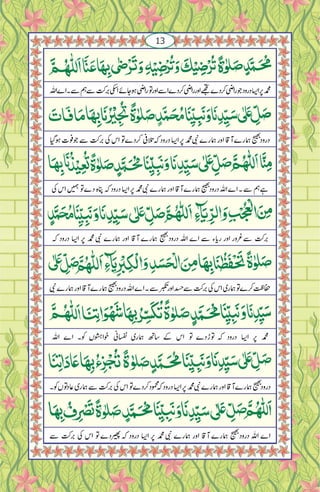 13
مُحَمَّدٍ صَلٰوةً تُرْضِيْكَ وَتُرْضِيْهِ وَتَرْضٰى بِهَا عَنَّا اَللّٰهُمَّ
محمد پر ایسا درود جو راضی کردے تجھے اور راضی کردے اسے اور تو راضی ہوجائے اسکی برکت سے ہم سے۔ اے اللہ
صَلِّ عَلٰى سَيِّدِنَا وَنَبِيِّنَا مُحَمَّدٍ صَلٰوةً تُجْبَرُ بِهَا مَا فَاتَ
درود بھیج ہمارے آقا اور ہمارے نبی محمد پر ایسا درود کہ تلافی کردے تو اس کی برکت سے جو فوت ہو گیا
مِنَّا اَللّٰهُمَّ صَلِّ عَلٰى سَيِّدِنَا وَنَبِيِّنَا مُحَمَّدٍ صَلٰوةً تُعِيْذُنَا بِهَا
ہم سے۔ اے اللہ درود بھیج ہمارے آقا اور ہمارے نبی محمد پر ایسا درود کہ پناہ دے تو ہمیں اس کی
مِنَ الْعُجْبِ وَالرِّيَآءِ اَللّٰهُمَّ صَلِّ عَلٰى سَيِّدِنَا وَنَبِيِّنَا مُحَمَّدٍ
برکت سے غرور اور ریاء سے اے اللہ درود بھیج ہمارے آقا اور ہمارے نبی محمد پر ایسا درود کہ
صَلٰوةً تَحْفَظُنَا بِهَا مِنَ الْحَسَدِ وَالْكِبْرِيَآءِ اَللّٰهُمَّ صَلِّ عَلٰى
حفاظت کرے تو ہماری اس کی برکت سے حسد اور تکبر سے۔ اے اللہ درود بھیج ہمارے آقا اور ہمارے نبی
سَيِّدِنَا وَنَبِيِّنَا مُحَمَّدٍ صَلٰوةً تُكَسِّرُ بِهَا شَهَوَاتِنَا اَللّٰهُمَّ
محمد پر ایسا درود کہ توڑ دے تو اس کے ساتھ ہماری نفسانی خواہشوں کو۔ اے اللہ
صَلِّ عَلٰى سَيِّدِنَا وَنَبِيِّنَا مُحَمَّدٍ صَلٰوةً تُجَزِّءُ بِهَا عَادَاتِنَا
درود بھیج ہمارے آقا اور ہمارے نبی محمد پر ایسا درود کہ عمدہ کردے تو اس کی برکت سے ہماری عادتوں کو۔
اَللّٰهُمَّ صَلِّ عَلٰى سَيِّدِنَا وَنَبِيِّنَا مُحَمَّدٍ صَلٰوةً تَصْرِفُ بِهَا
اے اللہ درود بھیج ہمارے آقا اور ہمارے نبی محمد پر ایسا درود کہ پھیر دے تو اس کی برکت سے